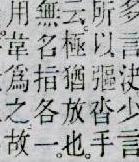 多言決少
所以彄沓手
云極猶放也
無名指各一
用韋為之故